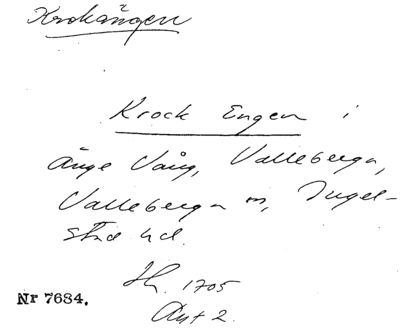 Krokängen
Krock Engen i
Änge Vång, Valleberga,
Valleberga sn, Ingel-
stad hd.
1705
Akt 2.
Nr 7684.